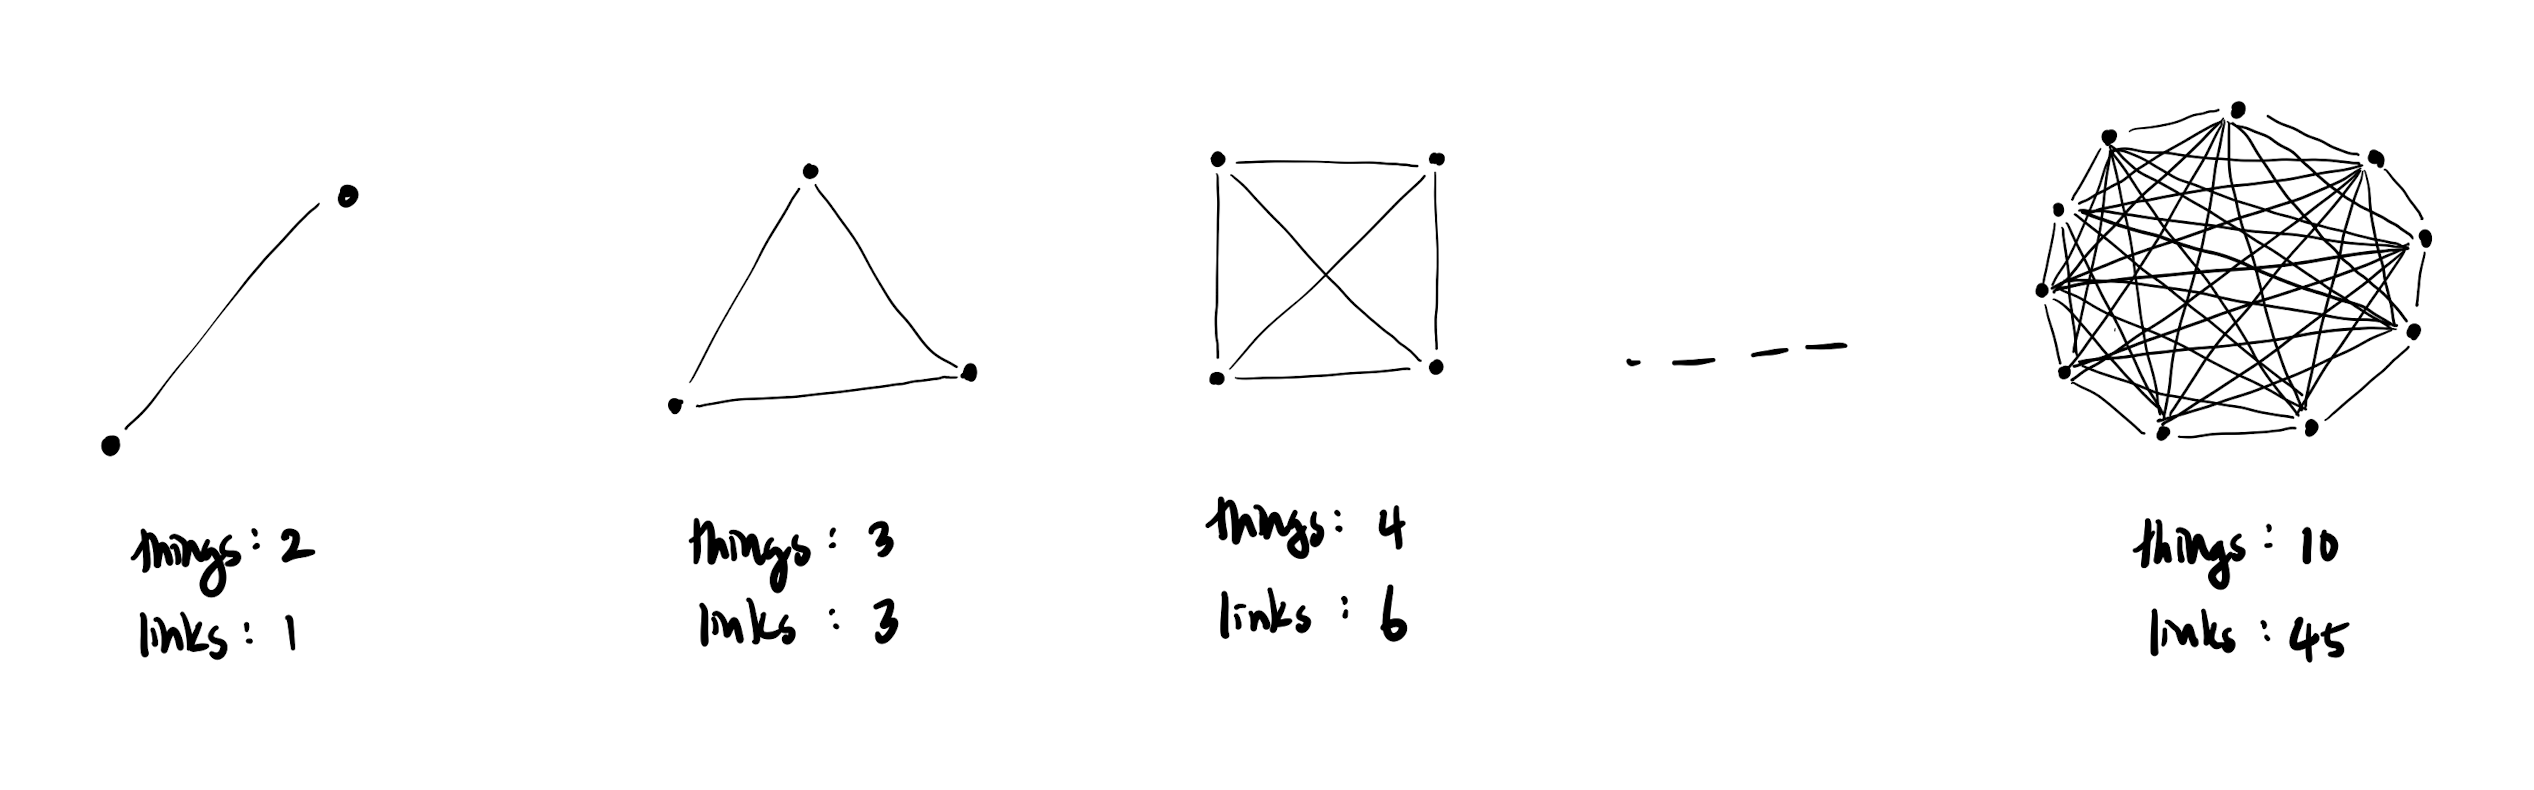 things: 2
links: 1
things: 3
links: 3
things: 4
links: 6
things: 10
links: 45